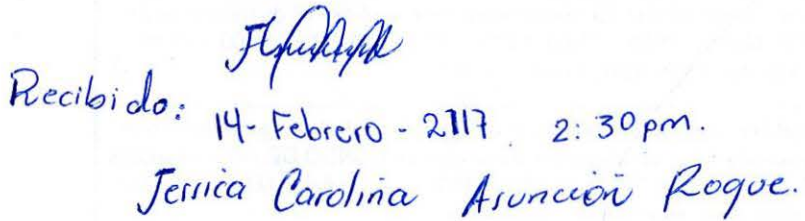 Recibido:
14-Febrero-2117 2:30pm.
Jessica Carolina Asunción Roque.